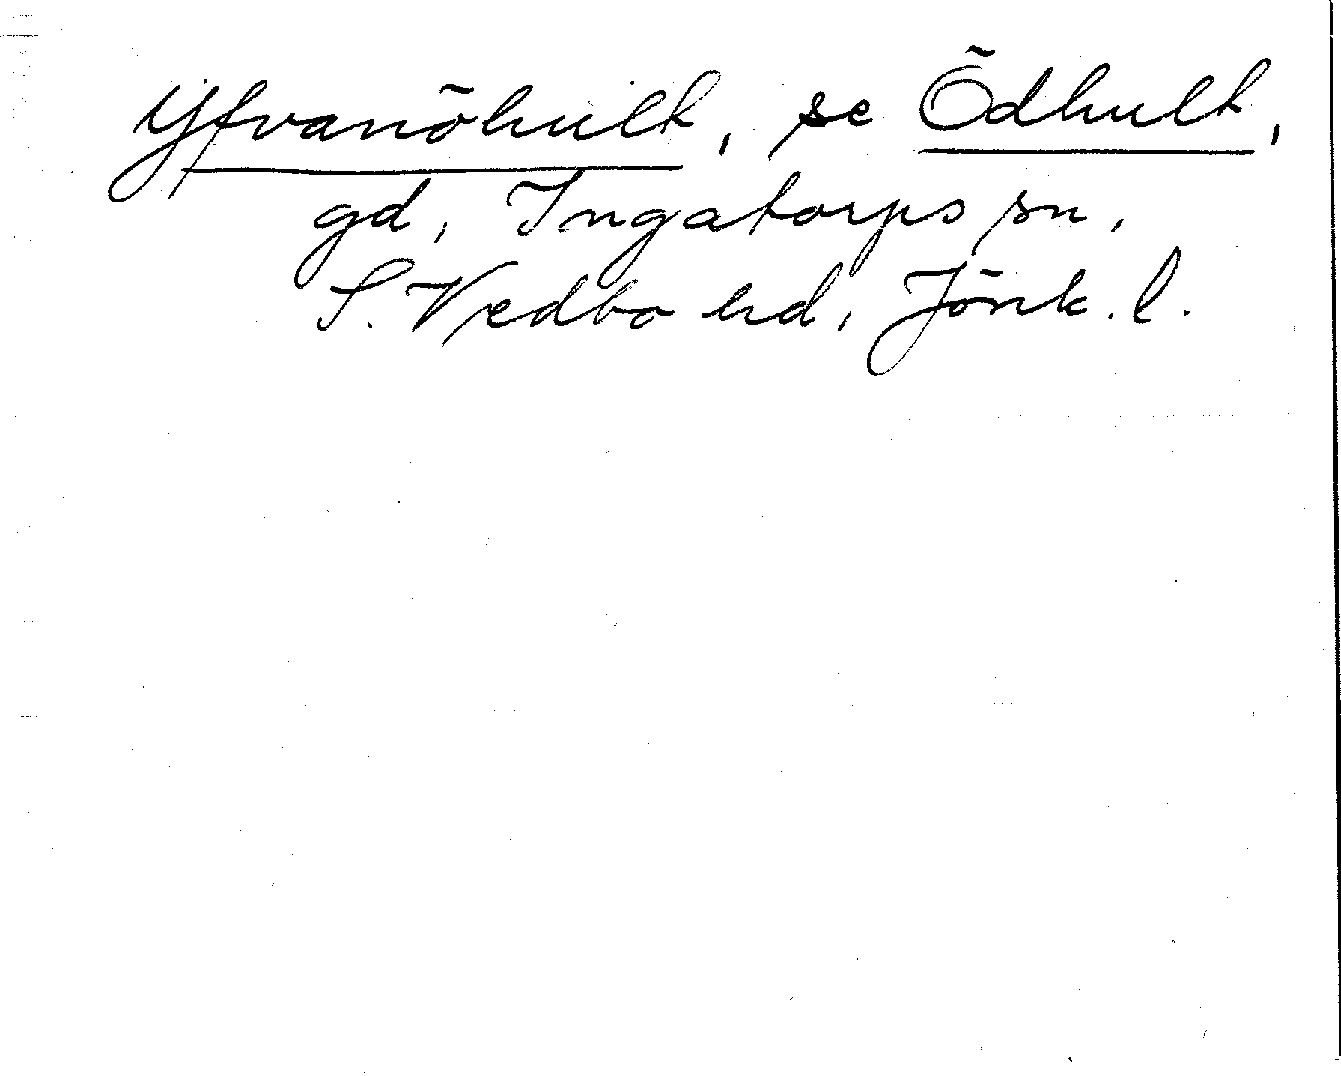 Yfvanöhult, se Ödhult,
gd, Ingatorps sn,
S. Vedbo hd, Jönk. l.